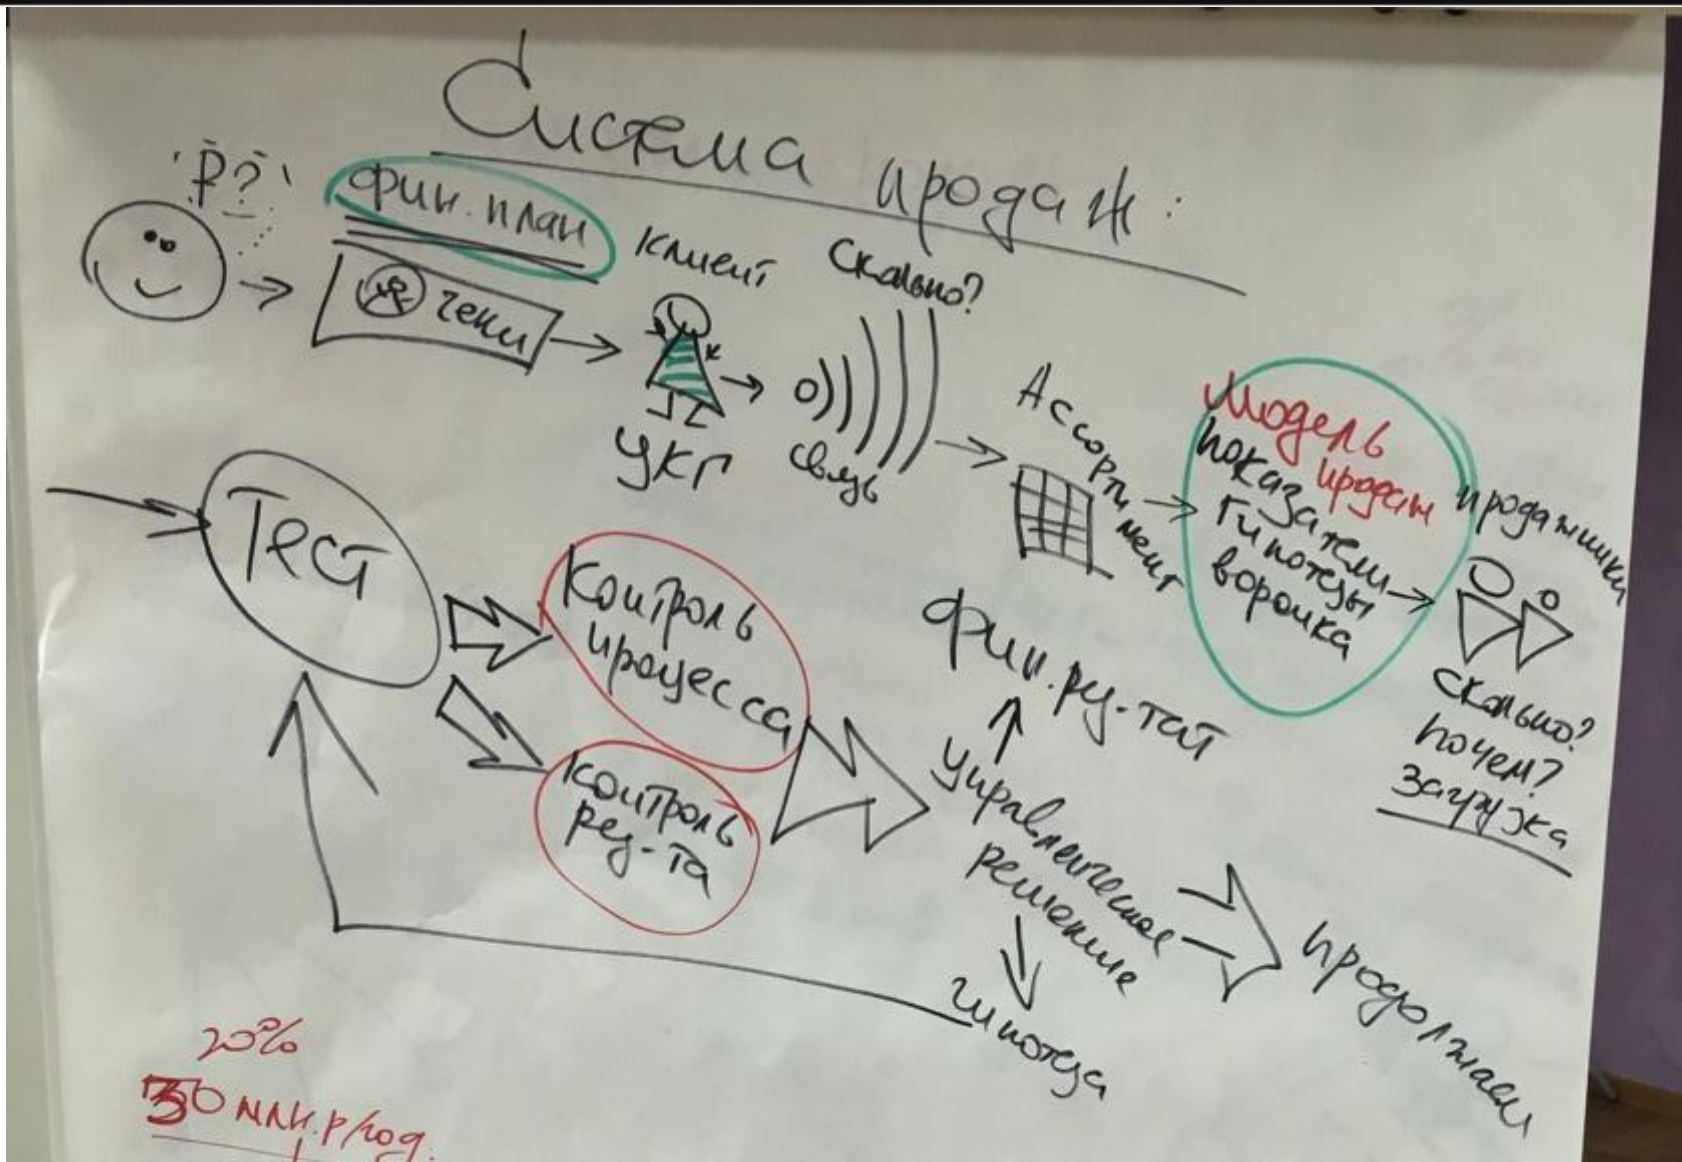 Система продаж:
₽?
фин. план
чеки
Клиент
УКП
Сколько?
связь
Ассортимент
Модель
продаж
показатели
Гипотезы
воронка
продажники
сколько?
почем?
загрузка
Тест
Контроль
процесса
Контроль
рез-та
фин. рез-тат
управленческое
решение
гипотеза
продолжаем
20%
млн.р/год.